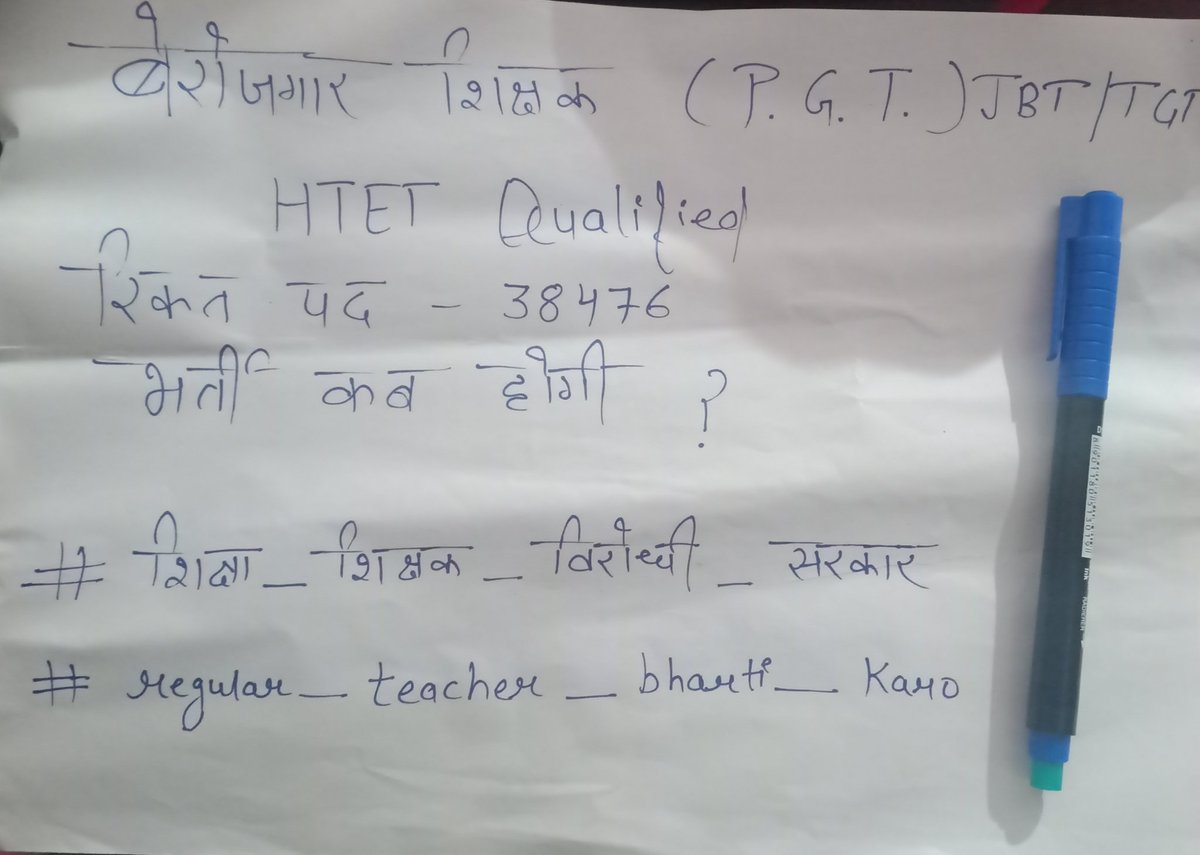 बेरोजगार शिक्षक (P. G. T.) JBT/TGT
HTET Qualified
रिक्त पद - 38476
भर्ती कब होगी ?
# शिक्षा_शिक्षक_विरोधी_सरकार
# regular_teacher_bharti_Karo